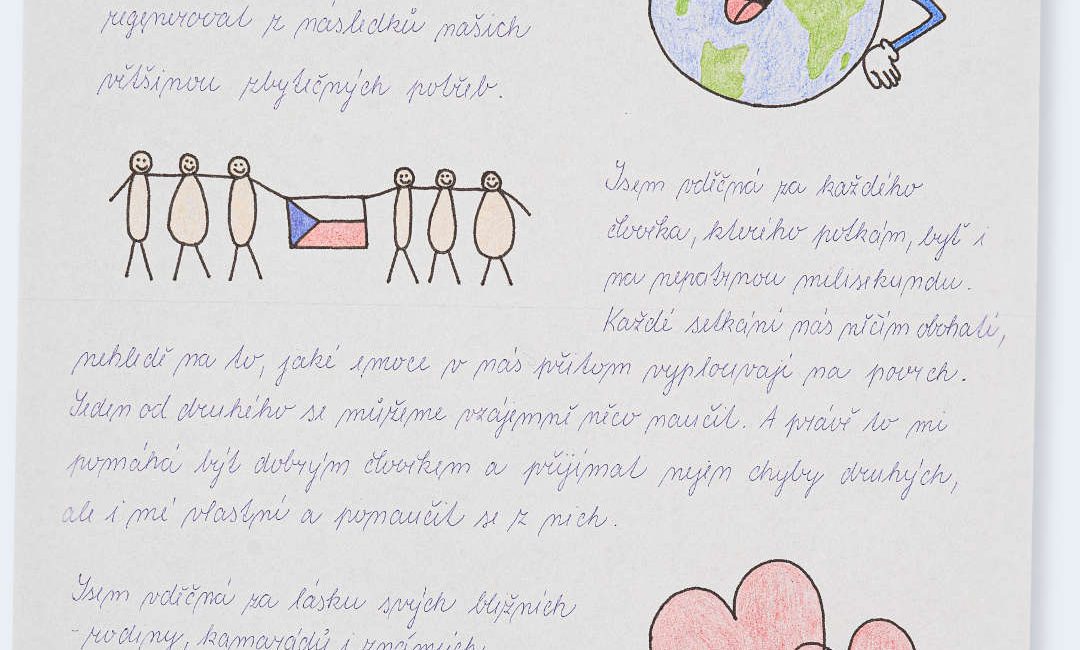 regenerovat z následků našich
většinou zbytečných potřeb.
Jsem vděčná za každého
člověka, kterého potkám, byť i
na nepatrnou milisekundu.
Každé setkání nás něčím obohatí,
nehledě na to, jaké emoce v nás přitom vyplouvají na povrch.
Jeden od druhého se můžeme vzájemně něco naučit. A právě to mi
pomáhá být dobrým člověkem a přijímat nejen chyby druhých,
ale i mé vlastní a ponaučit se z nich.
Jsem vděčná za lásku svých bližních
- rodiny, kamarádů i známých.